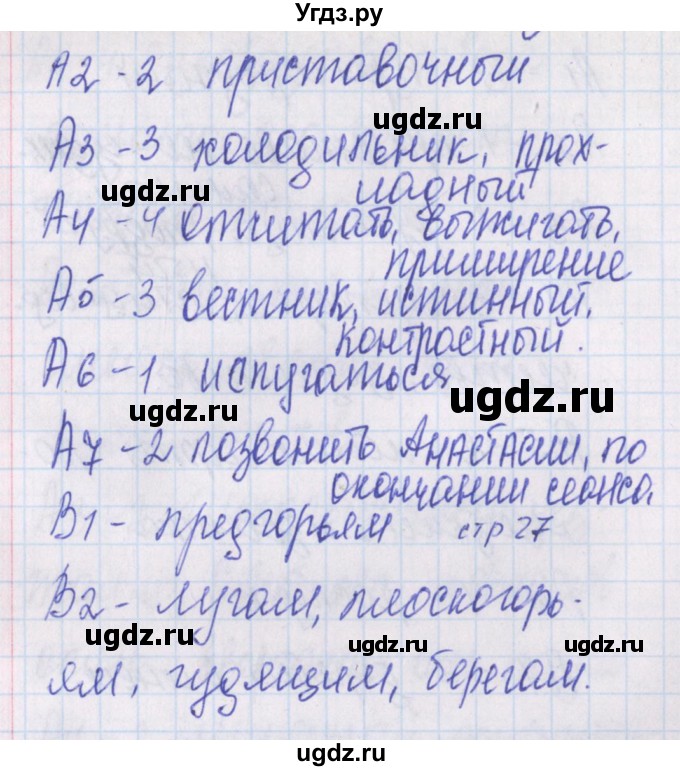 Угдз.ру
А2 - 2 приставочный
ugdz.ru
А3 - 3 холодильник, прох-
ugdz.ru
ладный
А4 - 4 отчитать, выжигать,
ugdz.ru
примирение
А5 - 3 вестник, истинный,
контрастный.
А6 - 1 испугаться
ugdz.ru
ugdz.ru
А7 - 2 позвонить Анастасии, по
окончании сеанса.
В1 - предгорьям стр 27
В2 - лугам, плоскогорь-
ugdz.ru
ugdz.ru
ugdz.ru
ям, гудящим, берегам.
ugdz.ru